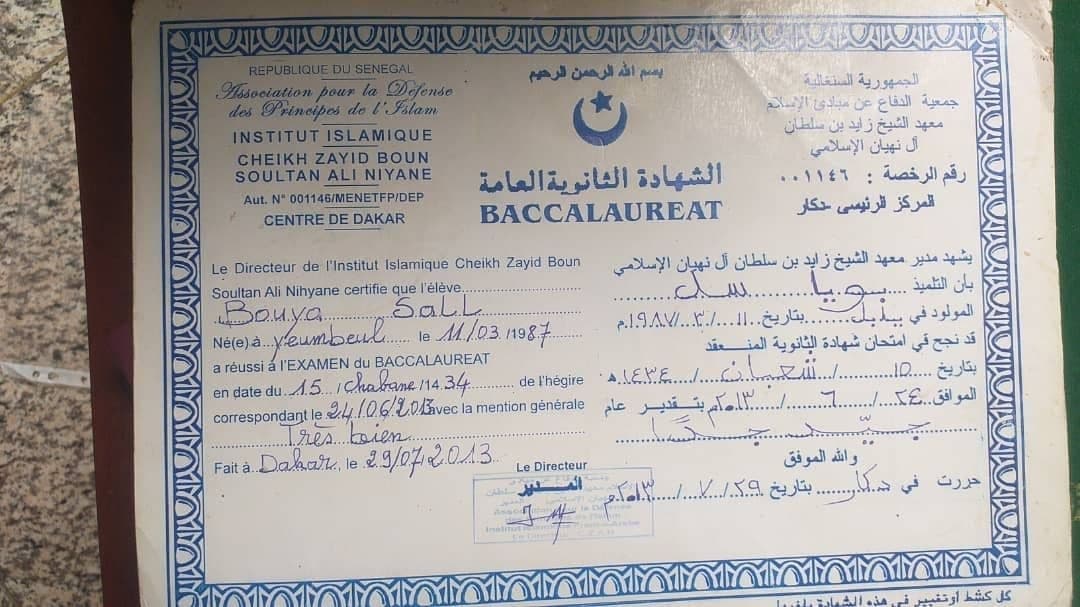 REPUBLIQUE DU SENEGAL
Association pour la Défense
des Principes de l'Islam
INSTITUT ISLAMIQUE
CHEIKH ZAYID BOUN
SOULTAN ALI NIYANE
Aut. N° 001146/MENETFP/DEP
CENTRE DE DAKAR
بسم الله الرحمن الرحيم
الشهادة الثانوية العامة
BACCALAUREAT
الجمهورية السنغالية
جمعية الدفاع عن مبادئ الإسلام
معهد الشيخ زايد بن سلطان
آل نهيان الإسلامي
رقم الرخصة : ٠٠١١٤٦
المركز الرئيسى -دكار
Le Directeur de l'Institut Islamique Cheikh Zayid Boun
Soultan Ali Nihyane certifie que l'élève
Bouya Sall
Né(e) à Yeumbeul le 11/03/1987
a réussi á l'EXAMEN du BACCALAUREAT
en date du 15 / Chabane /1434 de l'hégire
correspondant le 24/06/2013 avec la mention générale
Très bien
Fait à Dakar, le 29/07/2013
يشهد مدير معهد الشيخ زايد بن سلطان آل نهيان الإسلامي
بأن التلميذ بويا سل
المولود في بتاريخ ١١ / ٣ / ١٩٨٧م
قد نجح في امتحان شهادة الثانوية المنعقد
بتاريخ ١٥ / شعبان / ١٤٣٤هـ
الموافق ٢٤ / ٦ / ٢٠١٣م بتقدير عام
جيد جدا
والله الموفق
حررت في دكار بتاريخ ٢٩ / ٧ / ٢٠١٣م
Le Directeur
المدير
كل كشط أو تغيير في هذه الشهادة يلغيها